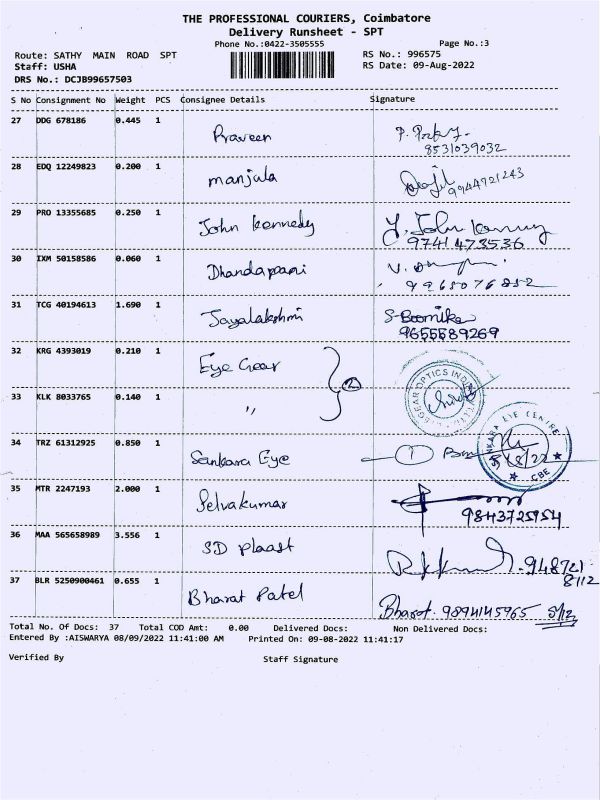 THE PROFESSIONAL COURIERS, Coimbatore
Delivery Runsheet - SPT
Phone No.:0422-3505555
Page No.:3
Route: SATHY MAIN ROAD SPT
RS No.: 996575
Staff: USHA
RS Date: 09-Aug-2022
DRS No.: DCJB99657503
S No Consignment No Weight PCS Consignee Details Signature
27 DDG 678186 0.445 1 Praveen
8531039032
28 EDQ 12249823 0.200 1 manjula 9944721243
29 PRO 13355685 0.250 1 John kennedy J. John
9741473536
30 IXM 50158586 0.060 1 Dhandapani V.
9965076852
31 TCG 40194613 1.690 1 Jayalakshmi S-Boomika
9655589269
32 KRG 4393019 0.210 1 Eye Gear
2
33 KLK 8033765 0.140 1 "
GEAR OPTICS INDIA
34 TRZ 61312925 0.850 1 Sankara Eye 1
SANKARA EYE CENTRE
CBE
35 MTR 2247193 2.000 1 Selvakumar
9843725954
36 MAA 565658989 3.556 1 SD plaast 948721
8112
37 BLR 5250900461 0.655 1 Bharat Patel
Bharat. 9894145965
Total No. Of Docs: 37 Total COD Amt: 0.00 Delivered Docs: Non Delivered Docs:
Entered By :AISWARYA 08/09/2022 11:41:00 AM Printed On: 09-08-2022 11:41:17
Verified By Staff Signature